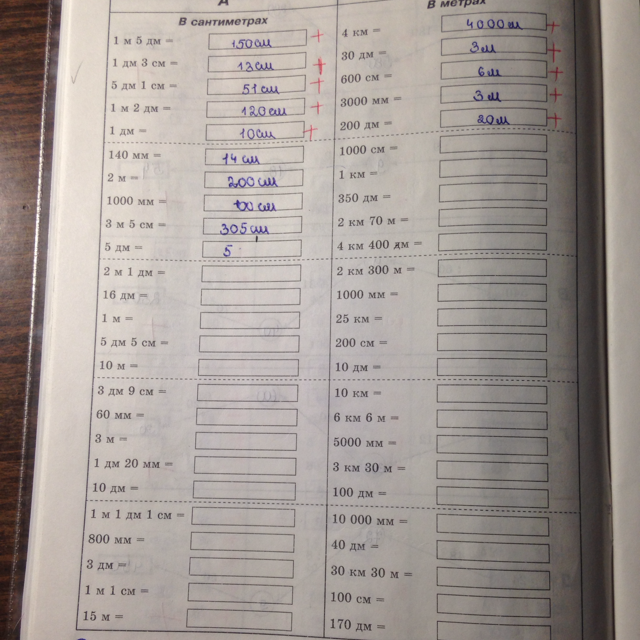 А
В сантиметрах
1 м 5 дм = 150см +
1 дм 3 см = 13см +
5 дм 1 см = 51см +
1 м 2 дм = 120см +
1 дм = 10см +
140 мм = 14см
2 м = 200см
1000 мм = 100см
3 м 5 см = 305см
5 дм = 5
2 м 1 дм =
16 дм =
1 м =
5 дм 5 см =
10 м =
3 дм 9 см =
60 мм =
3 м =
1 дм 20 мм =
10 дм =
1 м 1 дм 1 см =
800 мм =
3 дм =
1 м 1 см =
15 м =
В метрах
4 км = 4000м +
30 дм = 3м +
600 см = 6м +
3000 мм = 3м +
200 дм = 20м +
1000 см =
1 км =
350 дм =
2 км 70 м =
4 км 400 дм =
2 км 300 м =
1000 мм =
25 км =
200 см =
10 дм =
10 км =
6 км 6 м =
5000 мм =
3 км 30 м =
100 дм =
10 000 мм =
40 дм =
30 км 30 м =
100 см =
170 дм =